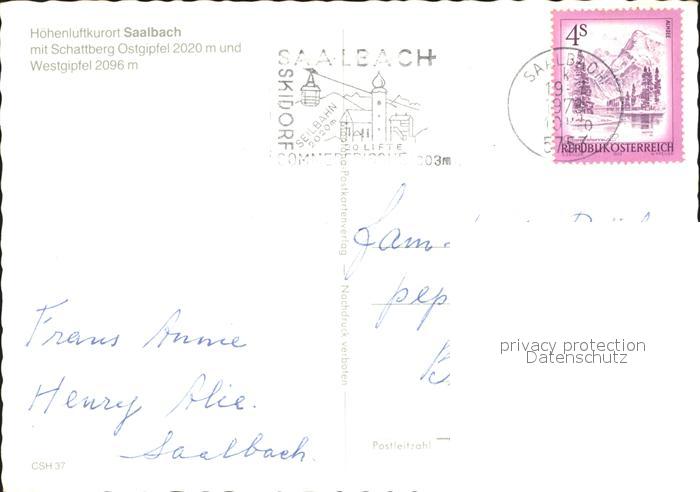 Höhenluftkurort Saalbach
mit Schattberg Ostgipfel 2020 m und
Westgipfel 2096 m
SAALBACH
SKIDORF
SEILBAHN
2020m
20 LIFTE
SOMMERFRISCHE 003m
SAALBACH
4S
ALMSEE
REPUBLIK ÖSTERREICH
Postkartenverlag
Nachdruck verboten
Fam.
Frans Annie
Henry Alie.
Saalbach.
privacy protection
Datenschutz
Postleitzahl
CSH 37